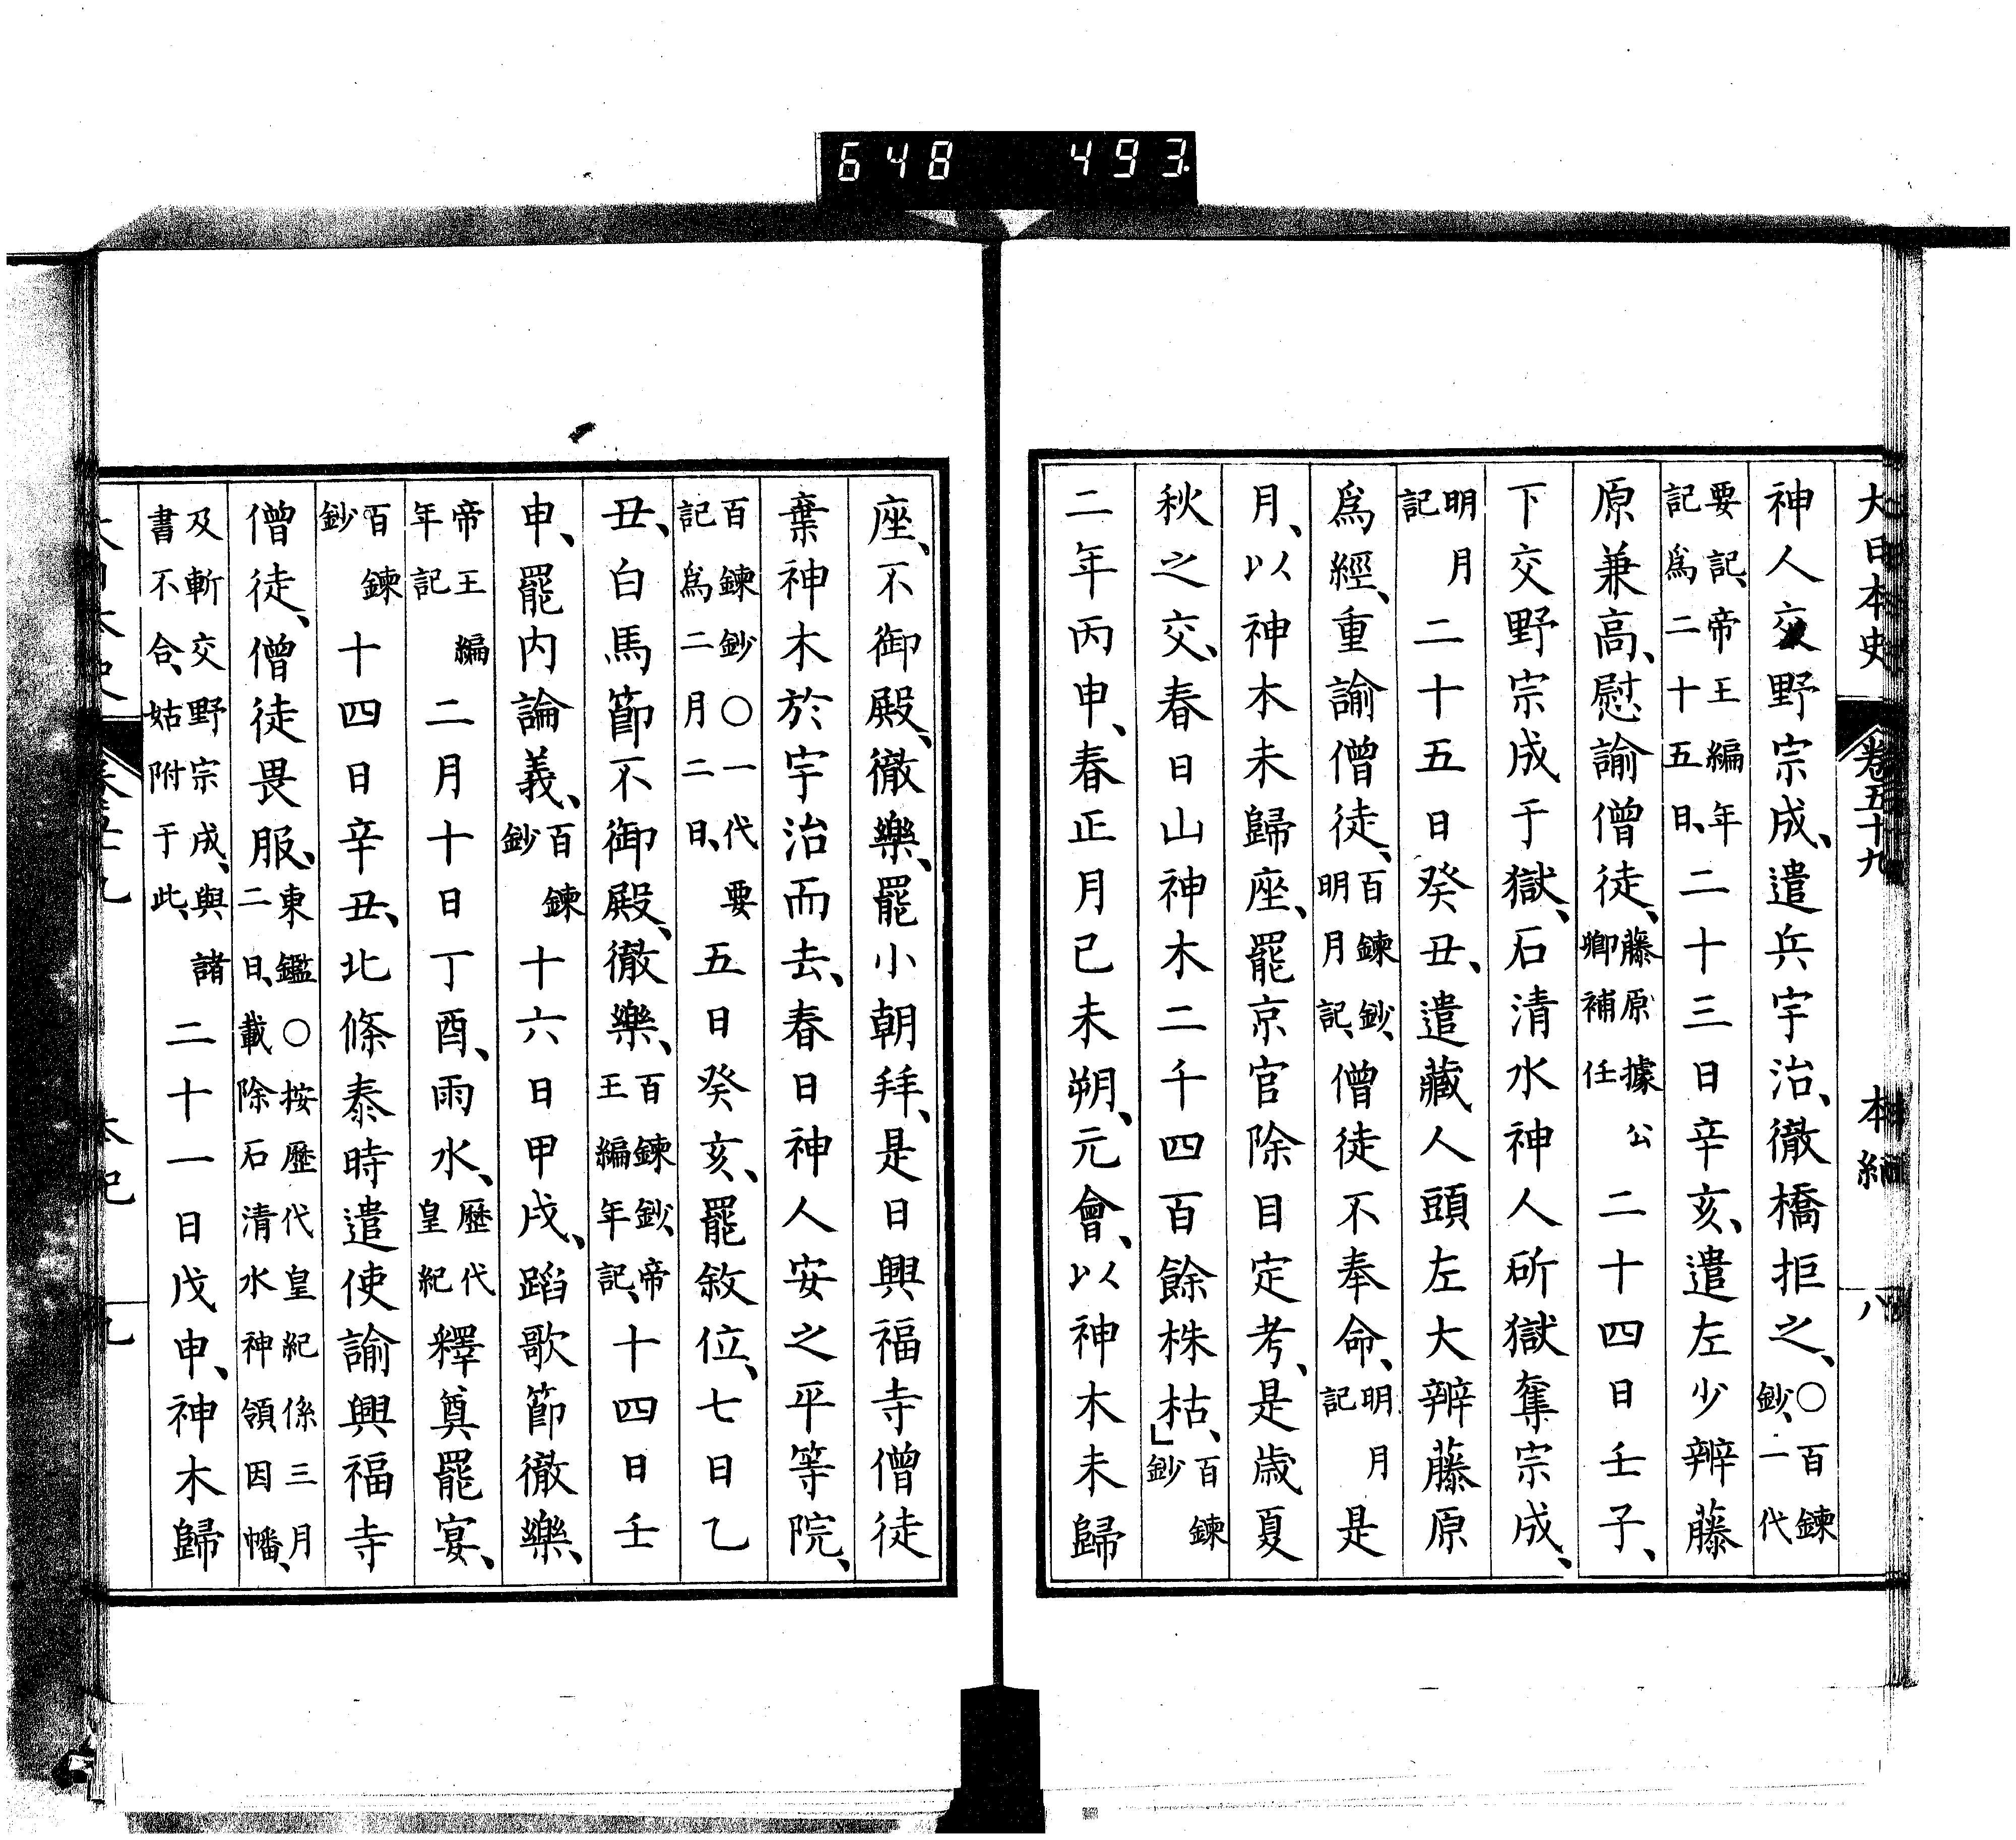 648 493
大日本史 卷五十九 本紀 八
神人交野宗成、遣兵宇治、徹橋拒之、○百鍊鈔、一代
要記、帝王編年記爲二十五日、二十三日辛亥、遣左少辨藤
原兼高、慰諭僧徒、藤原據公卿補任二十四日壬子、
下交野宗成于獄、石清水神人斫獄奪宗成、
明月記二十五日癸丑、遣藏人頭左大辨藤原
爲經、重諭僧徒、百鍊鈔、明月記、僧徒不奉命、明月記是
月、以神木未歸座、罷京官除目定考、是歲夏
秋之交、春日山神木二千四百餘株枯、」百鍊鈔
二年丙申、春正月己未朔、元會、以神木未歸
座、不御殿、徹樂、罷小朝拜、是日興福寺僧徒
棄神木於宇治而去、春日神人安之平等院、
百鍊鈔○一代要記爲二月二日、五日癸亥、罷敘位、七日乙
丑、白馬節不御殿、徹樂、百鍊鈔、帝王編年記、十四日壬
申、罷內論義、百鍊鈔十六日甲戌、蹈歌節徹樂、
帝王編年記二月十日丁酉、雨水、歷代皇紀釋奠罷宴、
百鍊鈔十四日辛丑、北條泰時遣使諭興福寺
僧徒、僧徒畏服、東鑑○按歷代皇紀係三月二日、載除石清水神領因幡、
及斬交野宗成、與諸書不合、姑附于此、二十一日戊申、神木歸